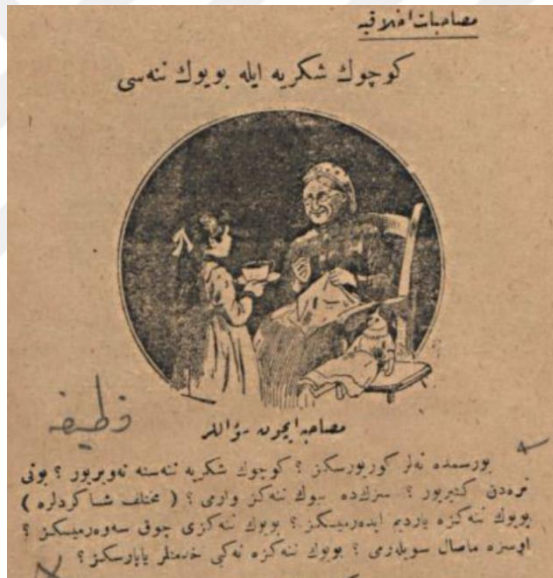 مصاحبات اخلاقیه
كوچوك شكریه ایله بویوك ننه‌سی
وظیفه
مصاحبه ایچون سؤاللر
بورسمده نه‌لر كوریورسكز ؟ كوچوك شكریه ننه‌سنه نه‌ویریور ؟ بونی
نره‌دن كتیریور ؟ سزكده بیوك ننه‌كز وارمی ؟ ( مختلف شاكردلره )
بویوك ننه‌كزه یاردیم ایده‌رمیسكز ؟ بویوك ننه‌كزی چوق سه‌وه‌رمیسكز ؟
اوسزه ماصال سویلرمی ؟ بویوك ننه‌كزه نه‌كبی خدمتلر یاپارسكز ؟